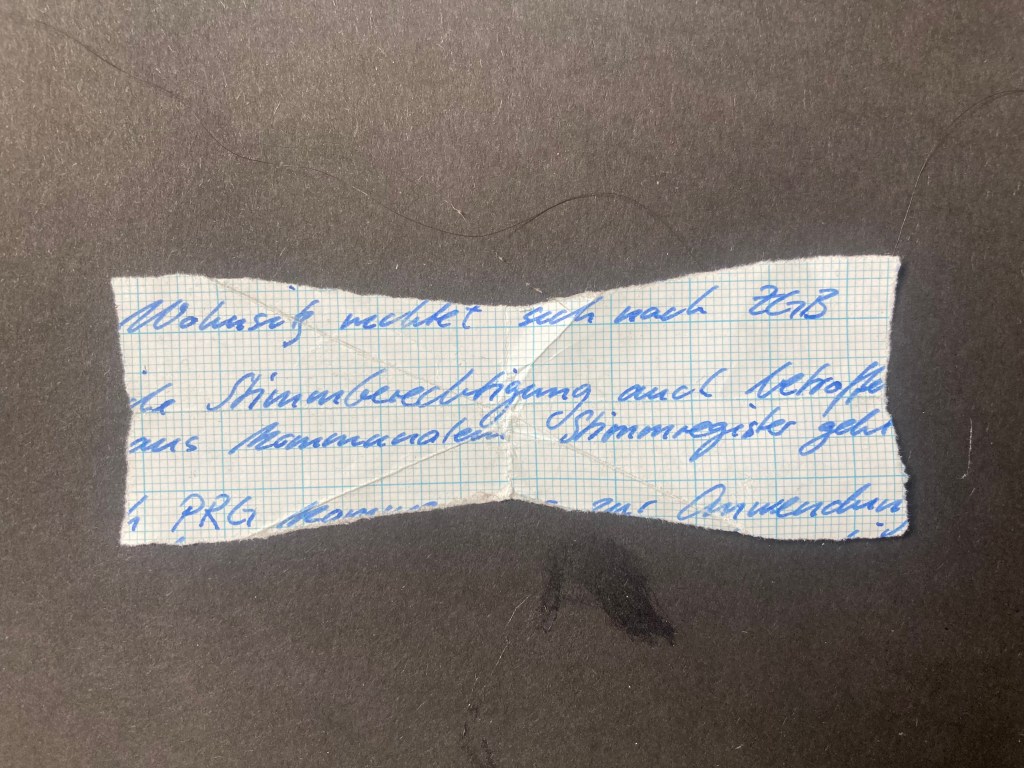 Wohnsitz richtet sich nach ZGB
Stimmberechtigung auch betroffe
aus kommunalem Stimmregister geht
PRG zur Anwendun